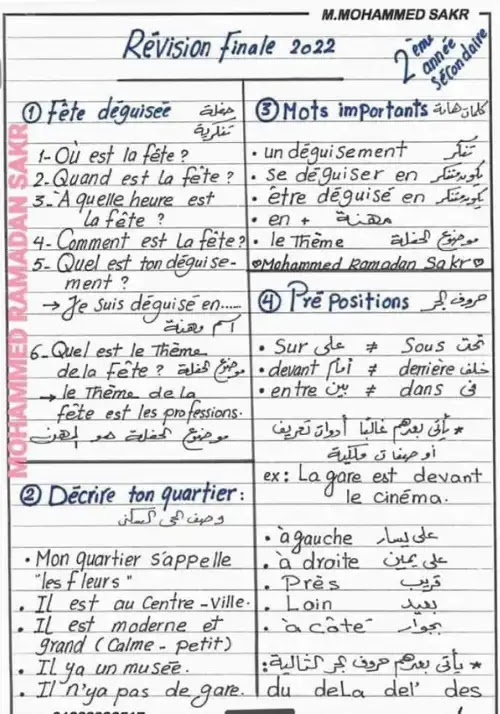 M.MOHAMMED SAKR
Révision Finale 2022
2ème année sécondaire
MOHAMMED RAMADAN SAKR
① Fête déguisée حفلة
تنكرية
1- Où est la fête ?
2- Quand est la fête ?
3- A quelle heure est
la fête ?
4- Comment est la fête ?
5- Quel est ton déguise-
ment ?
→ Je suis déguisé en.....
اسم مهنة
6- Quel est le Thème
de la fête ? موضوع الحفلة
→ le Thème de la
fête est les professions.
موضوع الحفلة هو المهن
② Décrire ton quartier :
وصف الحى السكنى
• Mon quartier s'appelle
"les fleurs"
• Il est au Centre-Ville.
• Il est moderne et
grand (Calme - petit)
• Il ya un musée.
• Il n'ya pas de gare.
③ Mots importants كلمات هامة
• un déguisement تنكر
• se déguiser en
• être déguisé en
• en + مهنة
• le Thème موضوع الحفلة
♡Mohammed Ramadan Sakr♡
④ Prépositions حروف جر
• Sur على ≠ Sous تحت
• devant أمام ≠ derière خلف
• entre بين ≠ dans فى
* يأتى بعدهم غالبًا أدوات تعريف
أو صفات ملكية
ex: La gare est devant
le cinéma.
• à gauche على يسار
• à droite على يمين
• Près قريب
• Loin بعيد
• à côté بجوار
* يأتى بعدهم حروف جر التالية:
du dela del' des